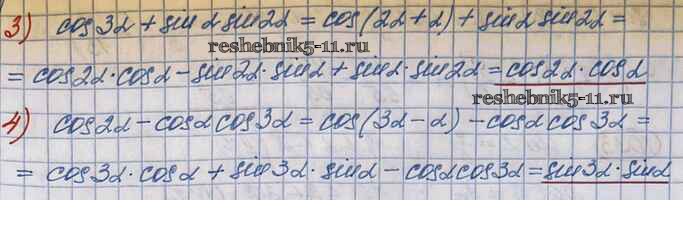 3) cos3α + sinα sin2α = cos(2α+α) + sinα sin2α =
reshebnik5-11.ru
= cos2α·cosα - sin2α·sinα + sinα·sin2α = cos2α·cosα
reshebnik5-11.ru
4) cos2α - cosα cos3α = cos(3α-α) - cosα cos3α =
= cos3α·cosα + sin3α·sinα - cosα cos3α = sin3α·sinα